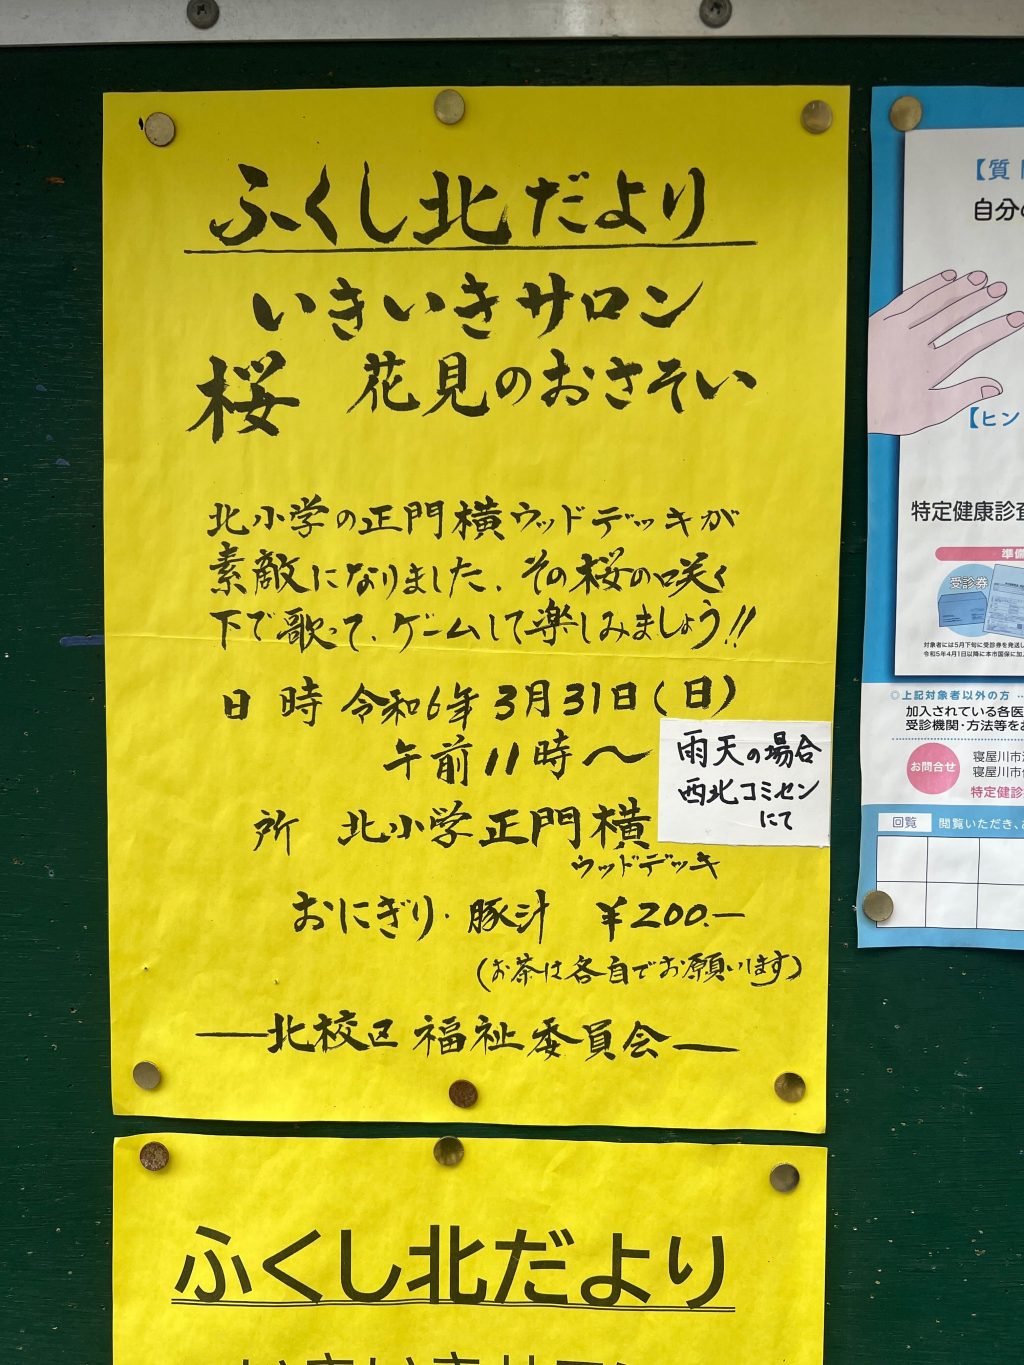 ふくし北だより
いきいきサロン
桜 花見のおさそい
北小学の正門横ウッドデッキが
素敵になりました。その桜の咲く
下で歌って、ゲームして楽しみましょう!!
日時 令和6年3月31日(日)
午前11時〜
雨天の場合
西北コミセン
にて
所 北小学正門横
ウッドデッキ
おにぎり・豚汁 ¥200.—
(お茶は各自でお願いします)
—北校区福祉委員会—
ふくし北だより
いきいきサロン
【質
自分の
【ヒン
特定健康診査
準備
受診券
対象者には5月下旬に受診券を発送し
令和5年4月1日以降に本市国保に加入
◎上記対象者以外の方
加入されている各医
受診機関・方法等をお
お問合せ
寝屋川市
寝屋川市
特定健診
回覧 閲覧いただき、